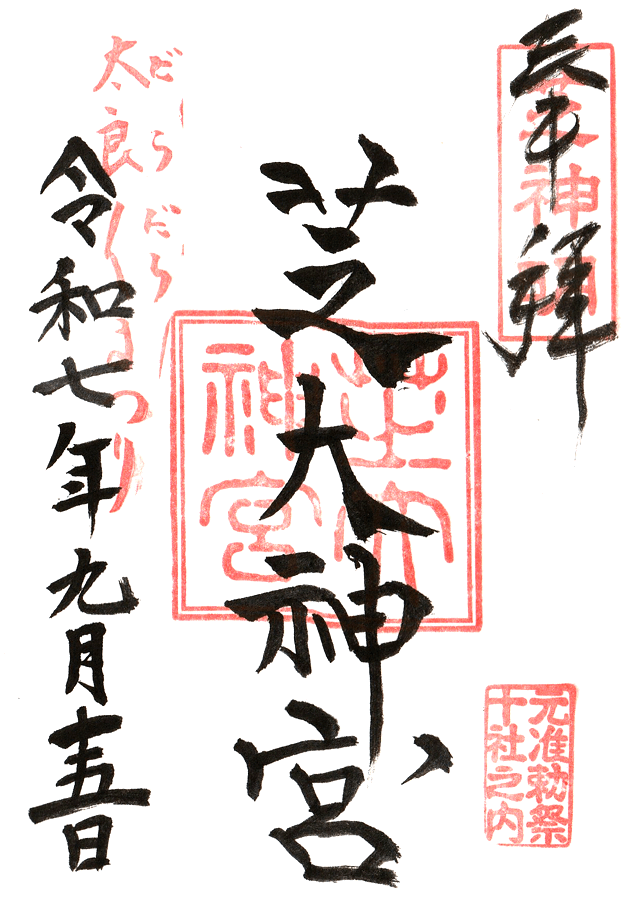 奉拝
芝神明
芝大神宮
芝大神宮
元准勅祭
十社之内
だらだら
太良〳〵まつり
令和七年九月十五日